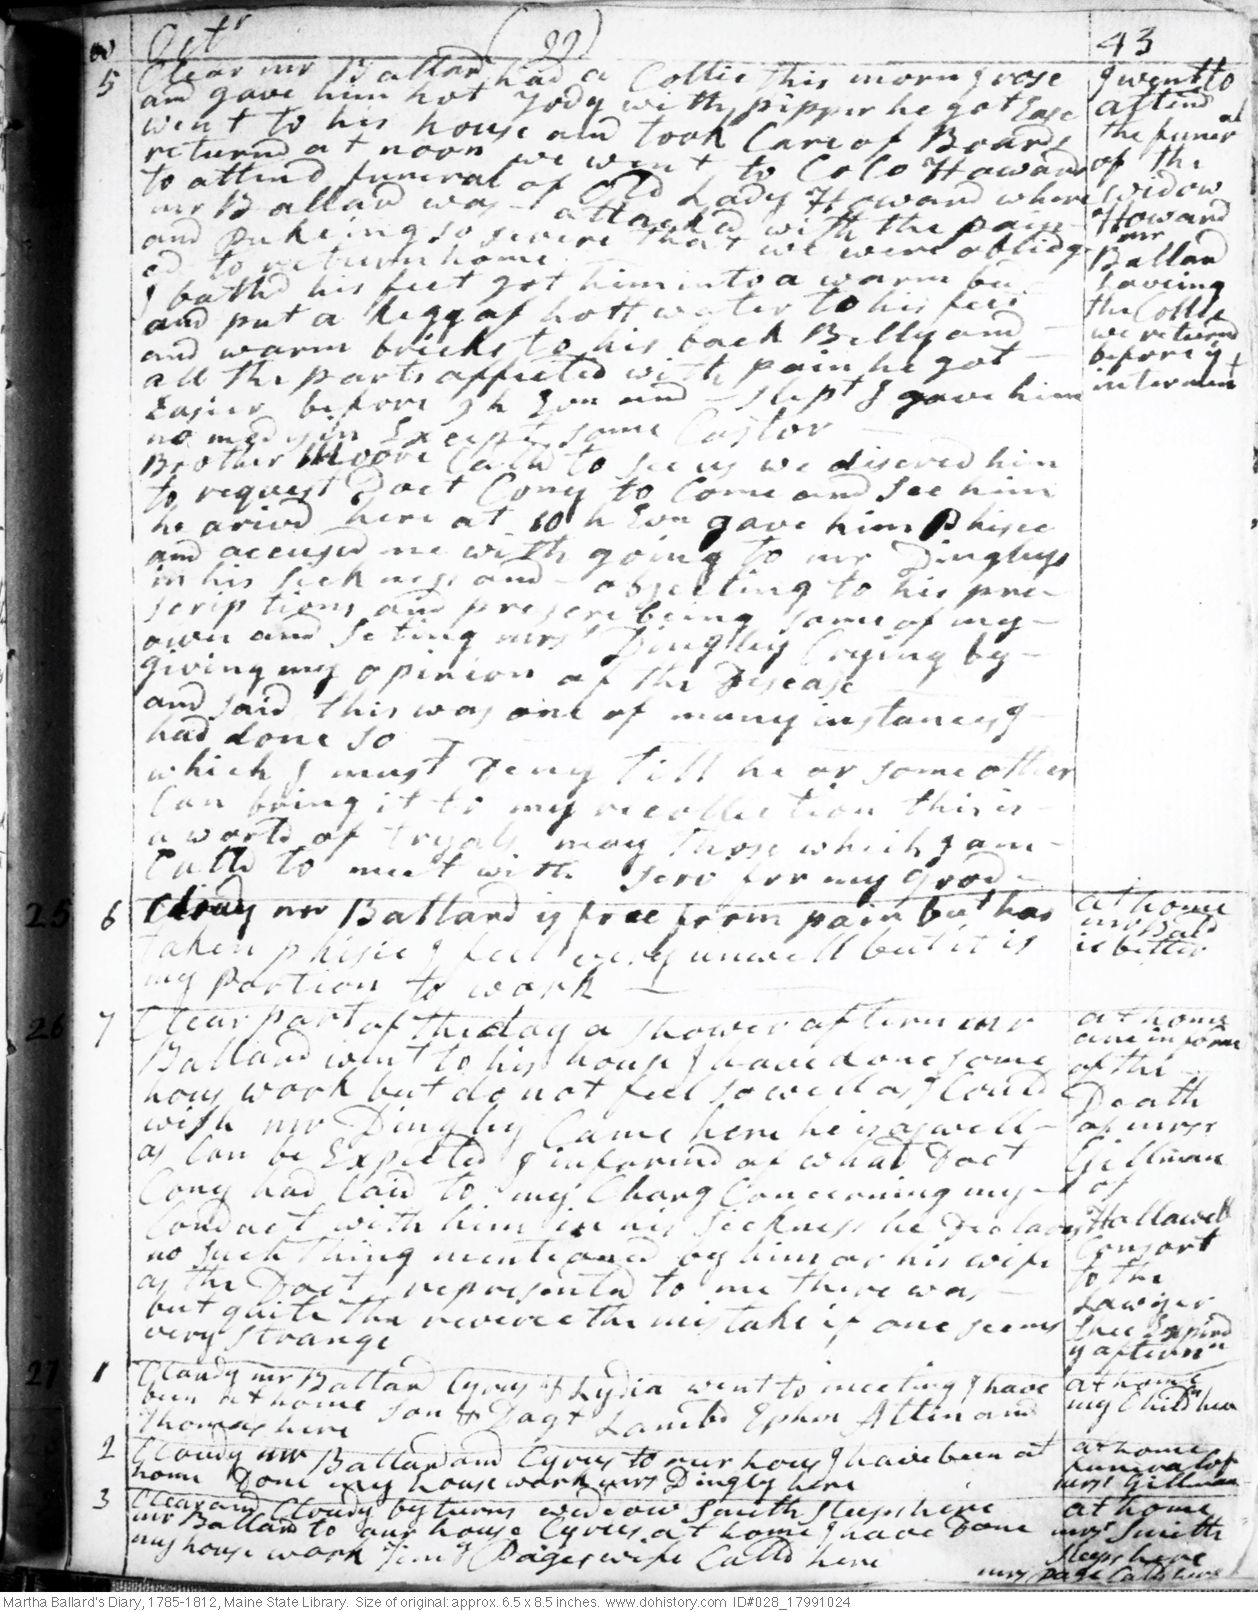 Octr (22) 43
5 Clear mr Ballard had a Collic this morn I rose
and gave him hot Tody with pipper he got Ease
went to his house and took Care of Boards
returnd at noon we went to Colo Howards
to attend funeral of Old Lady Howard where
mr Ballard was attackd with the pain
and pukeing so severe that we were oblidg
ed to return home
I bathd his feet got him into a warm bed
and put a kegg of hott water to his feet
and warm bricks to his back Belly and
all the parts affected with pain he got
Easier before 9 h Evn and slept I gave him
no medisin Except some Castor
Brother Moore Calld to see us we disered him
to request Doct Cony to Come and see him
he arivd here at 10 h Evn gave him Phisic
and accused me with going to mr Dingleys
in his sickness and objecting to his pre
scriptions and prescrebeing some of my
own and seting mrs Dingley Crying by
giving my opinion of the Disease
and said this was one of many instances I
had done so
which I must Deny till he or some other
Can bring it to my recollection this is
a world of tryals may those which I am
Calld to meet with serv for my good
I went to
attend
the funeral
of the
Widow
Howard
mr
Ballard
haveing
the Collic
we returnd
before ye
interment
25 6 Cloudy mr Ballard is free from pain but has
taken phisic I feel very unwell but it is
my Portion to work
at home
mr Balld
is better
26 7 Clear part of the day a shower aftern mr
Ballard went to his house I have done some
hous work but do not feel so well as I Could
wish mr Dingley Came here he is as well
as Can be Expected I informd of what Doct
Cony had laid to my Charg Concerning my
Conduct with him in his sickness he declares
no such thing mentioned by him or his wife
as the Doct representd to me there was
but quite the reverce the mistake if one seems
very strange
at home
am informd
of the
Death
of mrss
Gillman
of
Hallowell
Consort
to the
Lawyer
shee Expird
ys aftern
27 1 Cloudy mr Ballard Cyrus & Lydia went to meeting I have
been at home son & Dagt Lambd Ephm Allin and
Thomas here
at home
my Childn here
28 2 Cloudy mr Ballard and Cyrus to our hous I have been at
home Done my house work mrs Dingley here
at home
funeral of
mrs Gillman
3 Clear and Cloudy by turns wedeow Smith sleeps here
mr Ballard to our house Cyrus at home I have Done
my house work Page's wife Calld here
at home
mrs Smith
sleeps here
mrs Page Calld here
Martha Ballard's Diary, 1785-1812, Maine State Library. Size of original: approx. 6.5 x 8.5 inches. www.dohistory.com ID#028_17991024